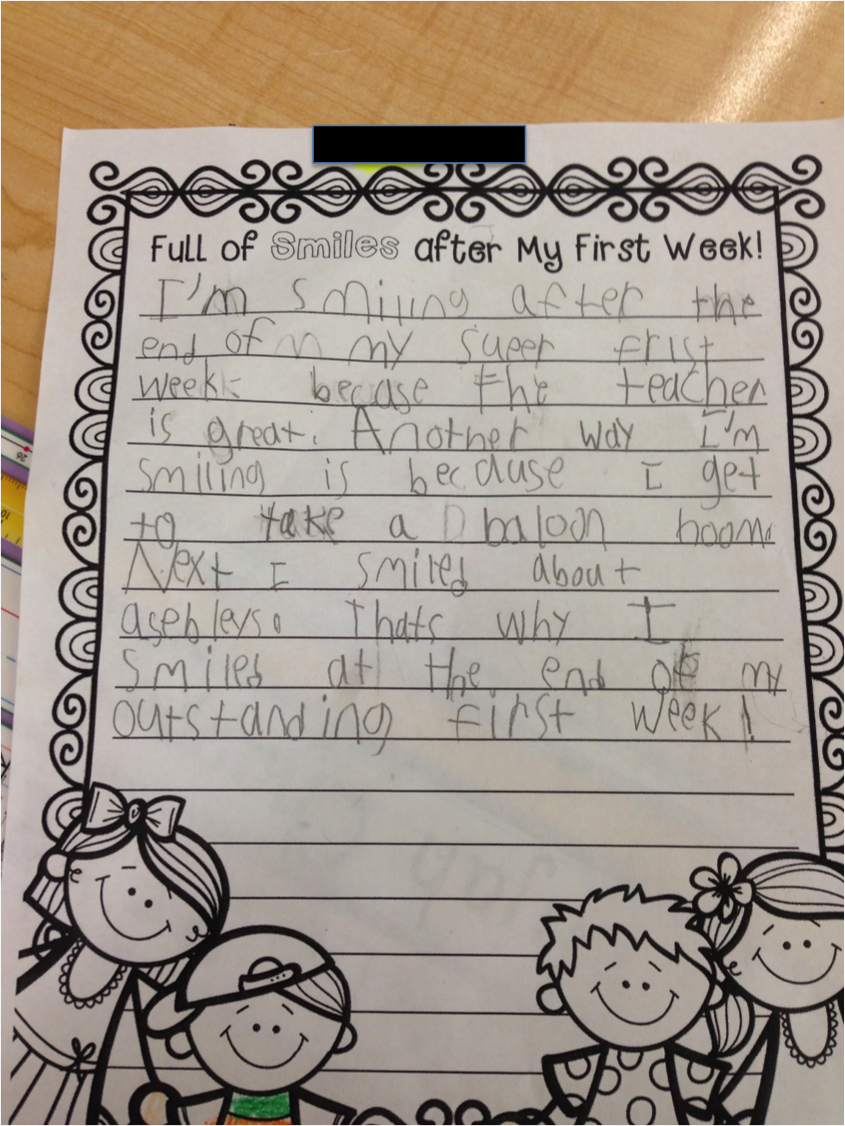 Full of Smiles after My First Week!
I'm smiling after the
end of my super frist
week becase the teacher
is great. Another way I'm
smiling is because I get
to take a baloon
Next I smiled about
aseblys. Thats why I
smiled at the end of my
outstanding first week!